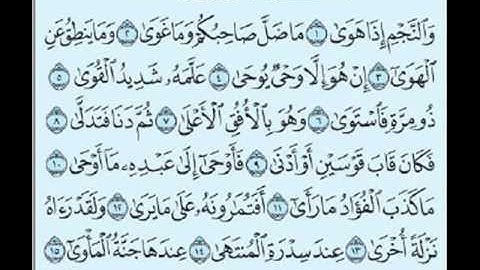 وَالنَّجْمِ إِذَا هَوَىٰ ۝١ مَا ضَلَّ صَاحِبُكُمْ وَمَا غَوَىٰ ۝٢ وَمَا يَنطِقُ عَنِ
الْهَوَىٰ ۝٣ إِنْ هُوَ إِلَّا وَحْيٌ يُوحَىٰ ۝٤ عَلَّمَهُ شَدِيدُ الْقُوَىٰ ۝٥
ذُو مِرَّةٍ فَاسْتَوَىٰ ۝٦ وَهُوَ بِالْأُفُقِ الْأَعْلَىٰ ۝٧ ثُمَّ دَنَا فَتَدَلَّىٰ ۝٨
فَكَانَ قَابَ قَوْسَيْنِ أَوْ أَدْنَىٰ ۝٩ فَأَوْحَىٰ إِلَىٰ عَبْدِهِ مَا أَوْحَىٰ ۝١٠
مَا كَذَبَ الْفُؤَادُ مَا رَأَىٰ ۝١١ أَفَتُمَارُونَهُ عَلَىٰ مَا يَرَىٰ ۝١٢ وَلَقَدْ رَءَاهُ
نَزْلَةً أُخْرَىٰ ۝١٣ عِندَ سِدْرَةِ الْمُنتَهَىٰ ۝١٤ عِندَهَا جَنَّةُ الْمَأْوَىٰ ۝١٥